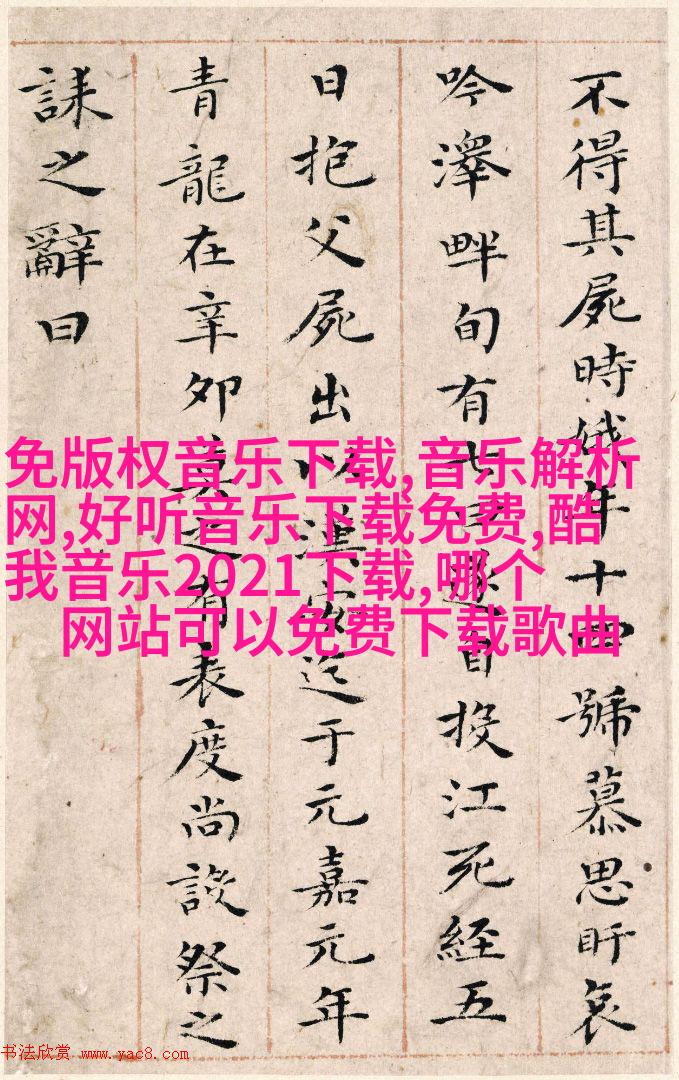 不得其屍時娥年十四號慕思盱哀
吟澤畔旬有七日遂自投江死經五
日抱父屍出以漢安迄于元嘉元年
青龍在辛卯莫之有表度尚設祭之
誄之辭曰
免版权音乐下载,音乐解析
网,好听音乐下载免费,酷
我音乐2021下载,哪个
网站可以免费下载歌曲
书法欣赏 www.yac8.com